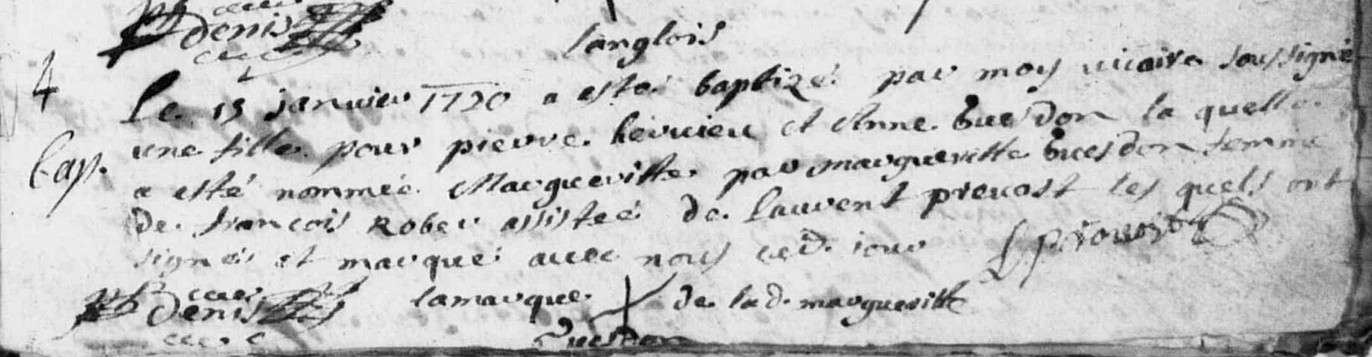 denis
langlois
4
Bap.
Le 15 janvier 1720 a esté baptizé par moy vicaire soussigné
une fille pour pierre levuieu et Anne buesdon la quelle
a esté nommée Margueritte par margueritte buesdon femme
de françois Rober assistée de laurent prevost les quels ont
signés et marqué avec nous ced. jour L prevost
denis la marque de lad. margueritte
buesdon